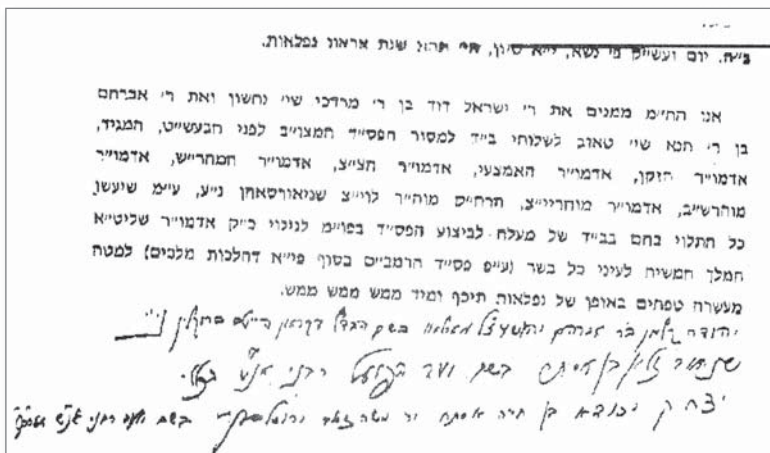 ב״ה. יום ועש״ק פ׳ נשא, י״א סיון, ה׳ תהא שנת אראנו נפלאות.
אנו הח״מ ממנים את ר׳ ישראל דוד בן ר׳ מרדכי שי׳ נחשון ואת ר׳ אברהם
בן ר׳ חנא שי׳ טאוב לשלוחי ב״ד למסור הפס״ד המצו״ב לפני הבעש״ט, המגיד,
אדמו״ר הזקן, אדמו״ר האמצעי, אדמו״ר הצ״צ, אדמו״ר המהר״ש, אדמו״ר
מוהרש״ב, אדמו״ר מוהריי״צ, הרה״ח מוה״ר לוי״צ שניאורסאהן נ״ע, ע״מ שיעשו
כל התלוי בהם בב״ד של מעלה לביצוע הפס״ד בפו״מ לגילוי כ״ק אדמו״ר שליט״א
המלך המשיח לעיני כל בשר (ע״פ פס״ד הרמב״ם בסוף פי״א דהלכות מלכים) למטה
מעשרה טפחים באופן של נפלאות תיכף ומיד ממש ממש ממש.
יהודה קלמן בר אברהם יהושע
בשם ועד הפועל רבני אנ״ש
יצחק יהודא בן חיה אסתר